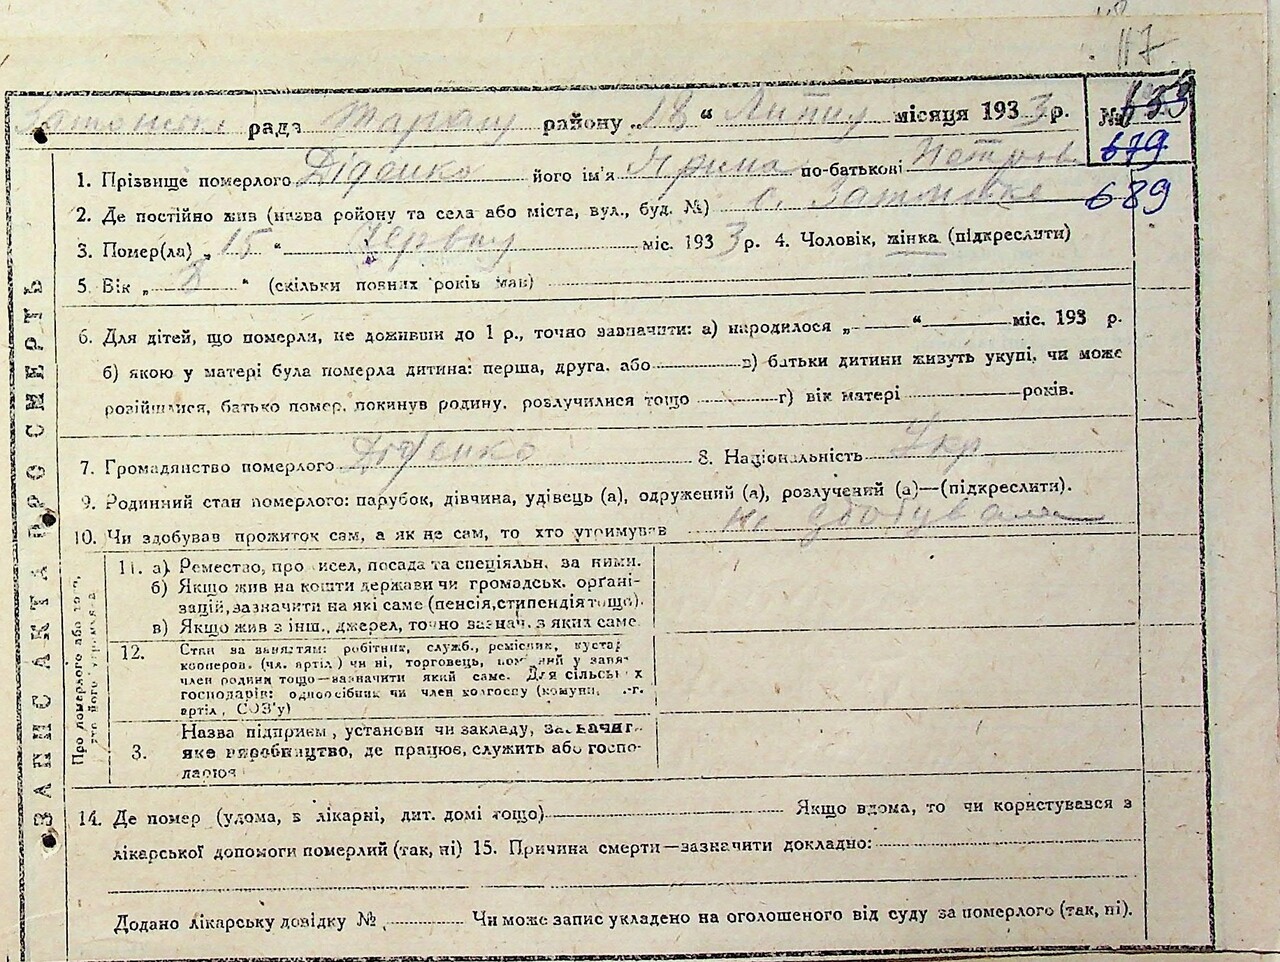 117
рада району „18“ Липня місяця 1933 р. №
679
1. Прізвище померлого Діденко його ім'я Ярина по-батькові Петров
2. Де постійно жив (назва ройону та села або міста, вул., буд. №) с.
689
3. Помер(ла) „15“ Червня міс. 1933 р. 4. Чоловік, жінка (підкреслити)
5. Вік „8“ (скільки повних років мав)
6. Для дітей, що померли, не доживши до 1 р., точно зазначити: а) народилося „ “ міс. 193 р.
б) якою у матері була померла дитина: перша, друга, або в) батьки дитини живуть укупі, чи може
розійшлися, батько помер, покинув родину, розлучилися тощо г) вік матері років.
7. Громадянство померлого Діденко 8. Національність Укр
9. Родинний стан померлого: парубок, дівчина, удівець (а), одружений (а), розлучений (а)—(підкреслити).
10. Чи здобував прожиток сам, а як не сам, то хто утримував не здобувала
ЗАПИС АКТА ПРО СМЕРТЬ
Про померлого або того,
11. а) Ремество, про исел, посада та спеціяльн. за ними.
б) Якщо жив на кошти держави чи громадськ. орґані-
зацій, зазначити на які саме (пенсія, стипендія тощо).
в) Якщо жив з інш., джерел, точно зазнач. з яких саме.
12. Стан за заняттям: робітник, служб., ремісник, кустар
кооперов. (чл. артіл) чи ні, торговець,
член родини тощо—зазначити який саме. Для сільськ х
господарів: одноосібник чи член колгоспу (комуни,
артіл, СОЗ'у)
Назва підприєм, установи чи закладу,
3. яке виробництво, де працює, служить або госпо-
дарює
14. Де помер (удома, в лікарні, дит. домі тощо) Якщо вдома, то чи користувався з
лікарської допомоги померлий (так, ні) 15. Причина смерти—зазначити докладно:
Додано лікарську довідку № Чи може запис укладено на оголошеного від суду за померлого (так, ні).